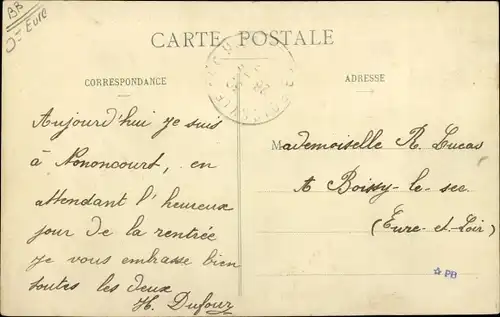 BB
Eure
CARTE POSTALE
CORRESPONDANCE
ADRESSE
Aujourd'hui je suis
à Nononcourt, en
attendant l'heureux
jour de la rentrée
je vous embrasse bien
toutes les deux
H. Dufour
Mademoiselle R. Lucas
A Boissy-le-sec
(Eure-et-Loir)
☆PB